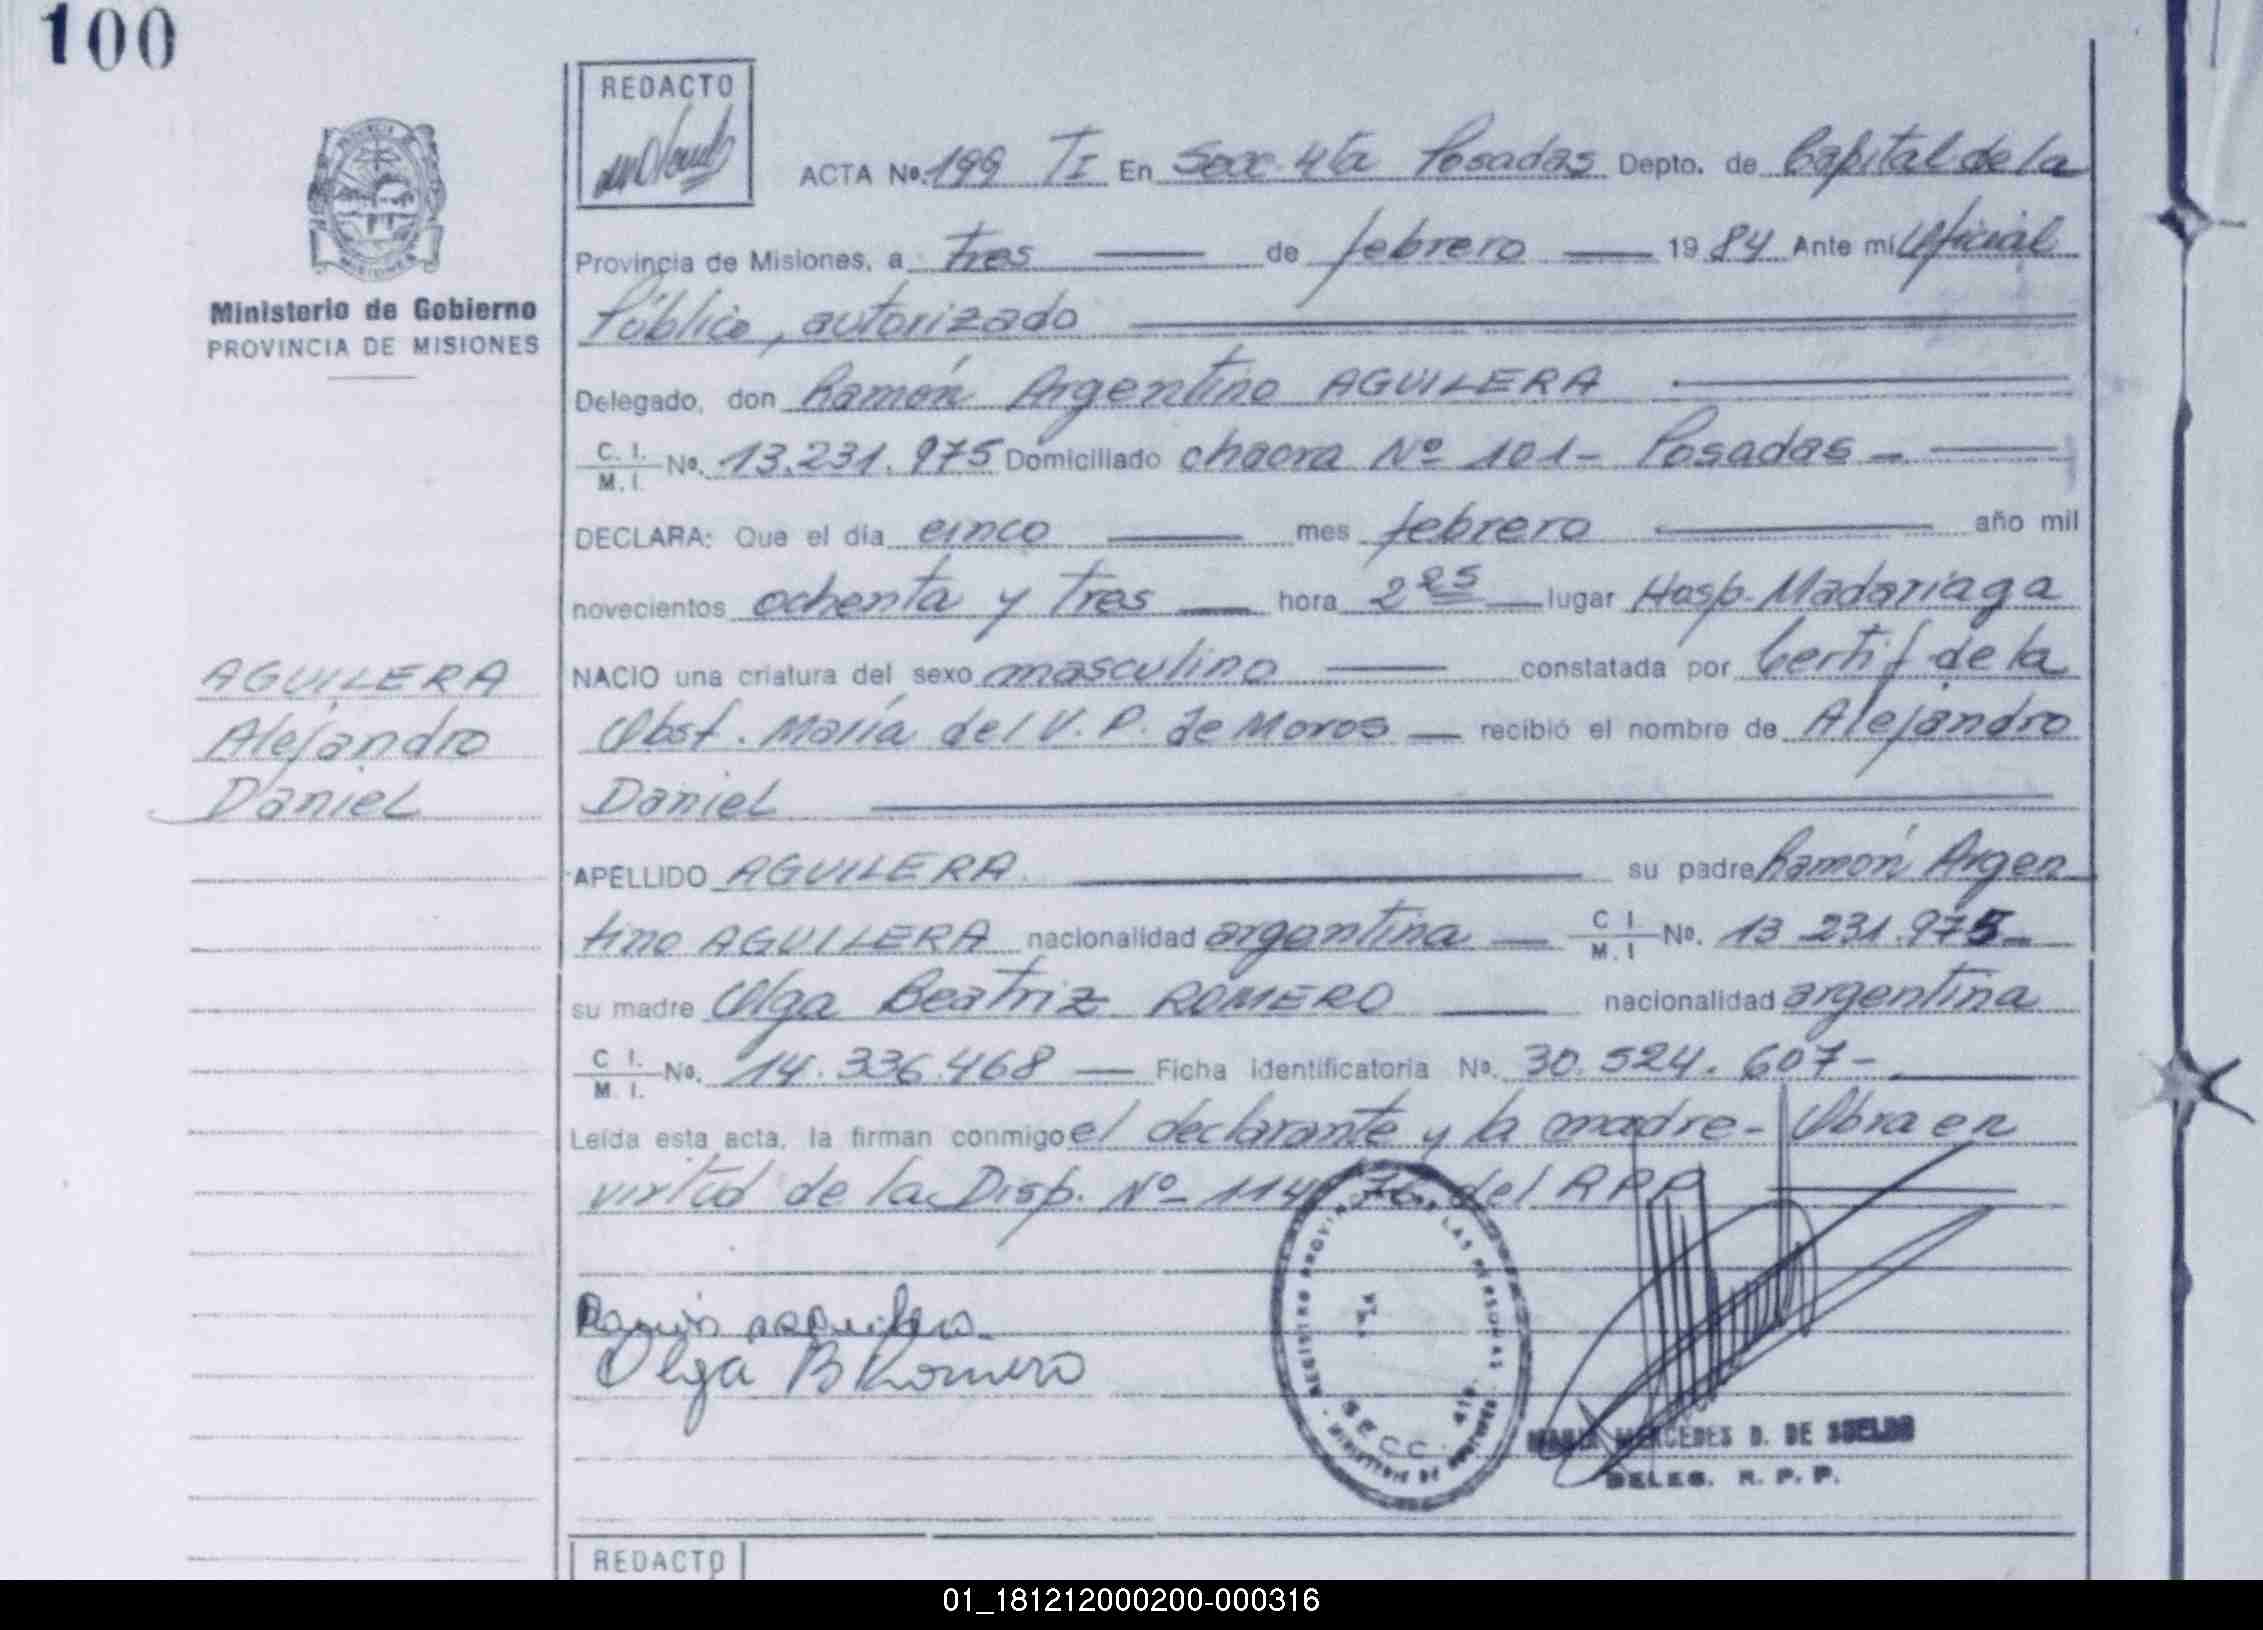 100
REDACTO
ACTA Nº. 199 TI En Secc. 4ta Posadas Depto. de Capital de la
Provincia de Misiones, a tres de febrero 1984 Ante mi Oficial
Ministerio de Gobierno
PROVINCIA DE MISIONES
Público, autorizado
Delegado, don Ramón Argentino AGUILERA
C. I.
M. I. Nº. 13.231.975 Domiciliado chacra Nº 101- Posadas -
DECLARA: Que el día cinco mes febrero año mil
novecientos ochenta y tres hora 2 25 lugar Hosp. Madariaga
AGUILERA
Alejandro
Daniel
NACIO una criatura del sexo masculino constatada por Certif de la
Obst. María del V. P. de Moros recibió el nombre de Alejandro
Daniel
APELLIDO AGUILERA su padre Ramón Argen
tino AGUILERA nacionalidad argentina C I.
M. I Nº. 13 231.975
su madre Olga Beatriz ROMERO nacionalidad argentina
C I.
M. I. Nº. 14.336.468 Ficha identificatoria Nº. 30.524.607-
Leída esta acta, la firman conmigo el declarante y la madre- Obra en
virtud de la Disp. Nº 114/76 del RPP
Ramón Aguilera
Olga B Romero
REGISTRO PROVINCIAL DE LAS PERSONAS
SECC. 4ta.
MARIA MERCEDES D. DE
DELEG. R. P. P.
REDACTO
01_181212000200-000316